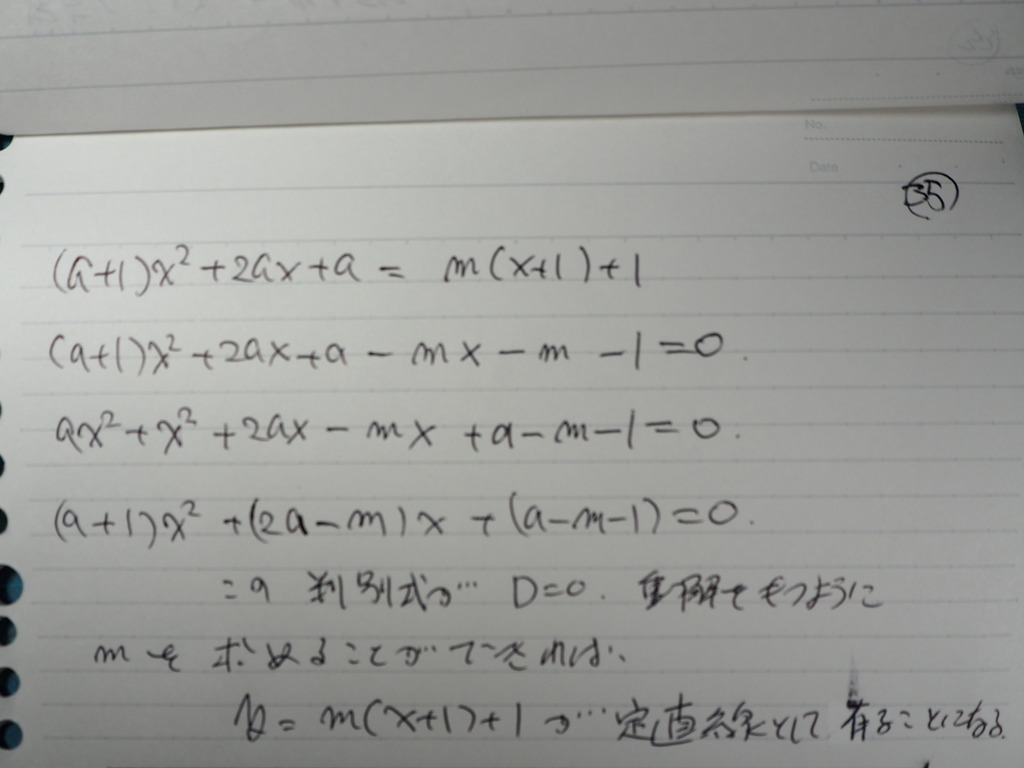 No.
Date
35
(a+1)x²+2ax+a = m(x+1)+1
(a+1)x²+2ax+a-mx-m-1=0.
ax²+x²+2ax-mx+a-m-1=0.
(a+1)x²+(2a-m)x+(a-m-1)=0.
この判別式が… D=0. 重解をもつように
mを求めることができれば、
y=m(x+1)+1が…定直線として有ることになる.